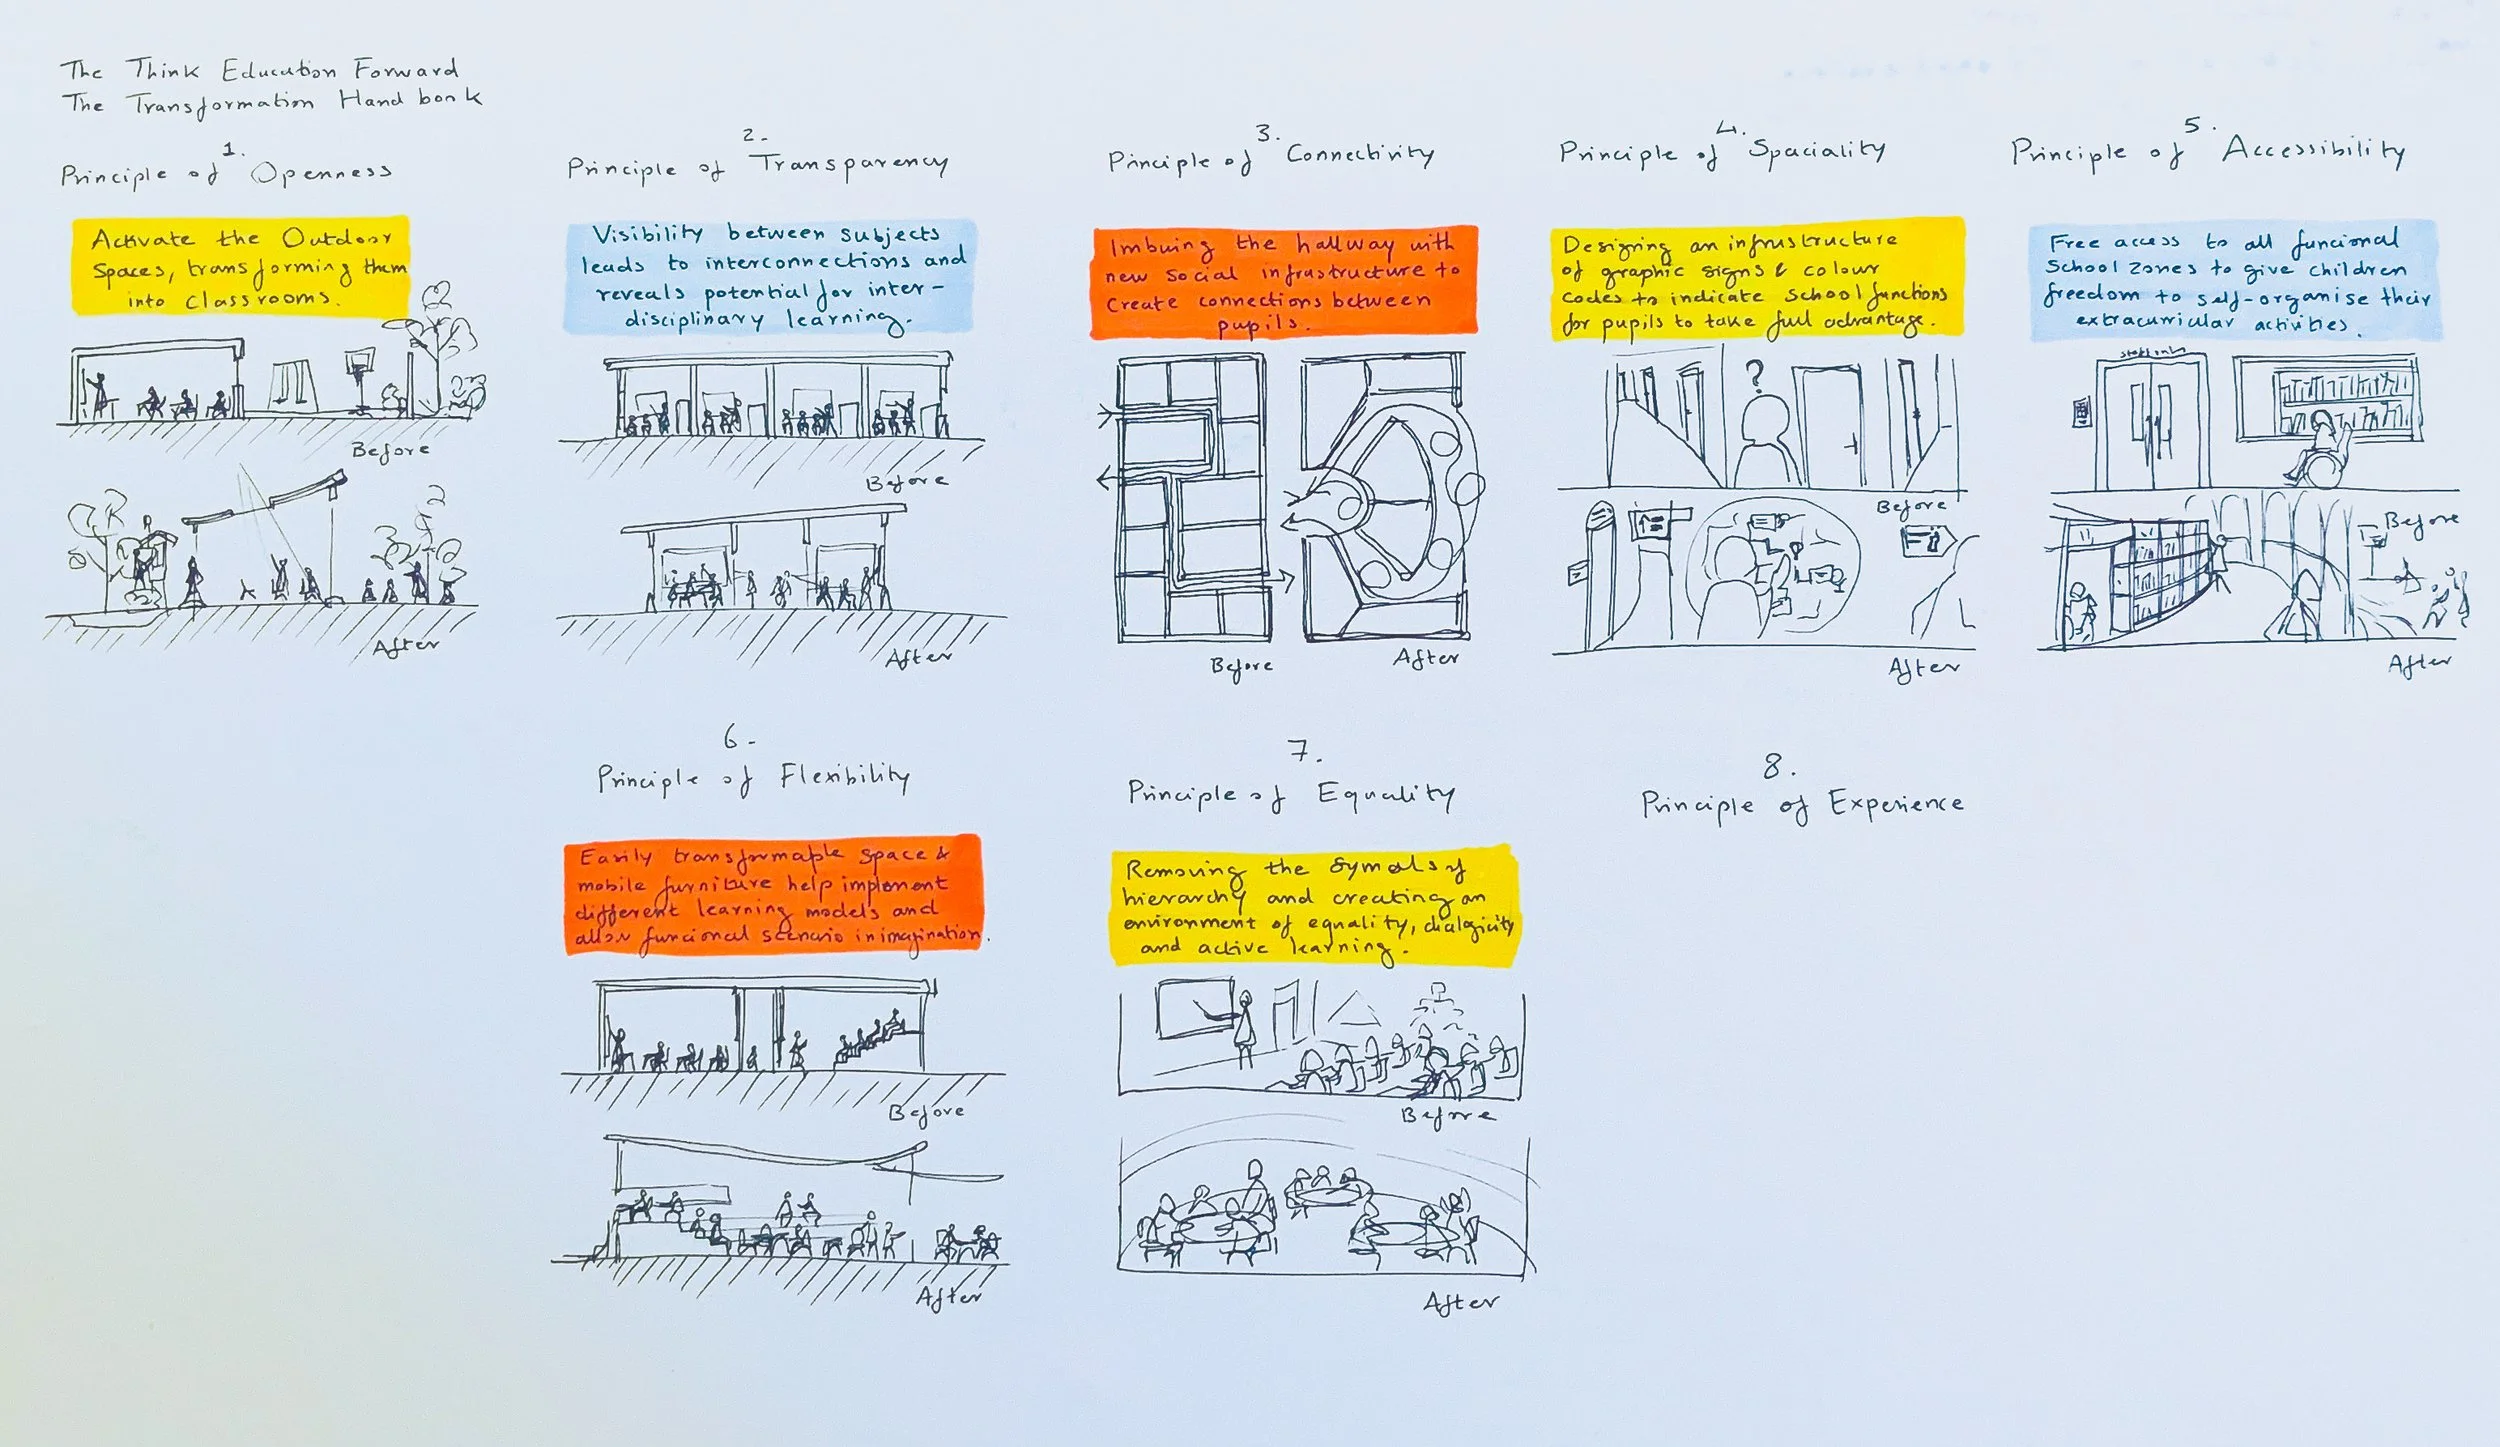 The Think Education Forward
The Transformation Handbook
1.
Principle of Openness
Activate the Outdoor
Spaces, transforming them
into classrooms.
Before
After
2.
Principle of Transparency
Visibility between subjects
leads to interconnections and
reveals potential for inter-
disciplinary learning.
Before
After
3.
Principle of Connectivity
Imbuing the hallway with
new social infrastructure to
create connections between
pupils.
Before
After
4.
Principle of Spaciality
Designing an infrustructure
of graphic signs & colour
codes to indicate school functions
for pupils to take full advantage.
?
Before
After
5.
Principle of Accessibility
Free access to all funcional
School zones to give children
freedom to self-organise their
extracurricular activities.
Staff only
Before
After
6.
Principle of Flexibility
Easily transformable space &
mobile furniture help implement
different learning models and
allow funcional scenario in imagination.
Before
After
7.
Principle of Equality
Removing the symols of
hierarchy and creating an
environment of equality, dialogicity
and active learning.
Before
After
8.
Principle of Experience